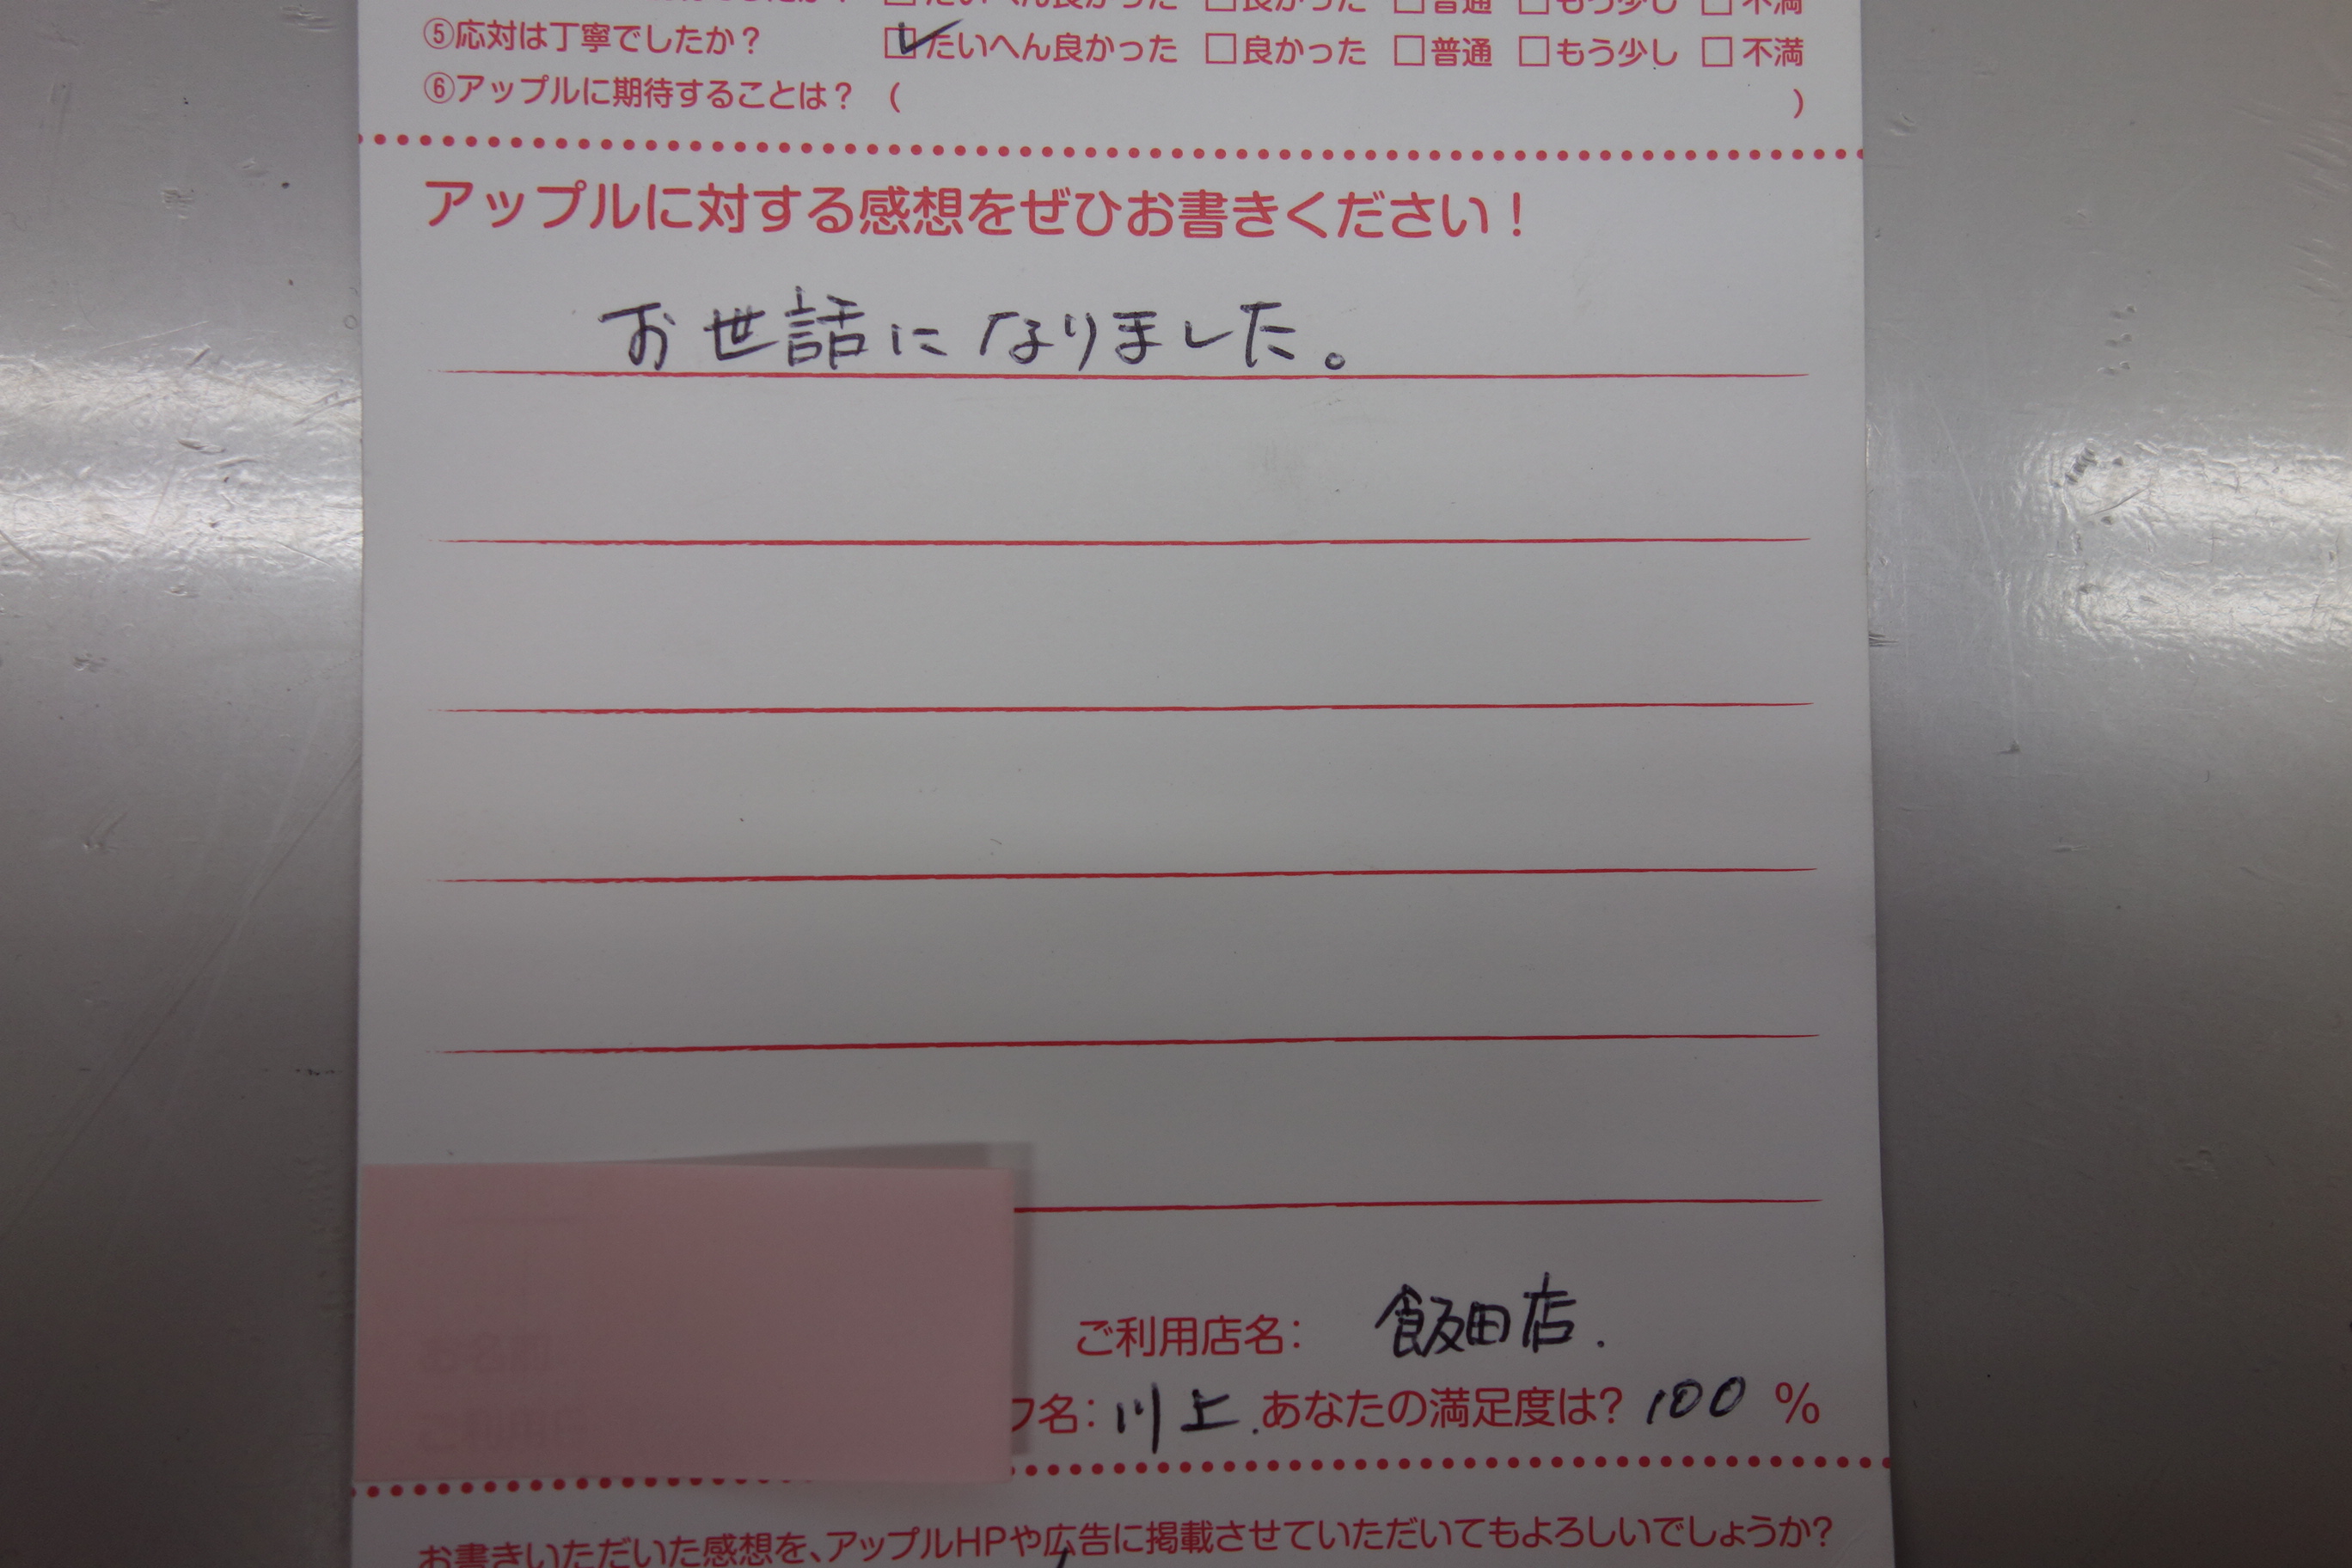 □たいへん良かった □良かった □普通 □もう少し □不満
⑤応対は丁寧でしたか？ ☑たいへん良かった □良かった □普通 □もう少し □不満
⑥アップルに期待することは？ （ ）
アップルに対する感想をぜひお書きください！
お世話になりました。
ご利用店名： 飯田店.
フ名：川上.あなたの満足度は？ 100 %
お書きいただいた感想を、アップルHPや広告に掲載させていただいてもよろしいでしょうか？